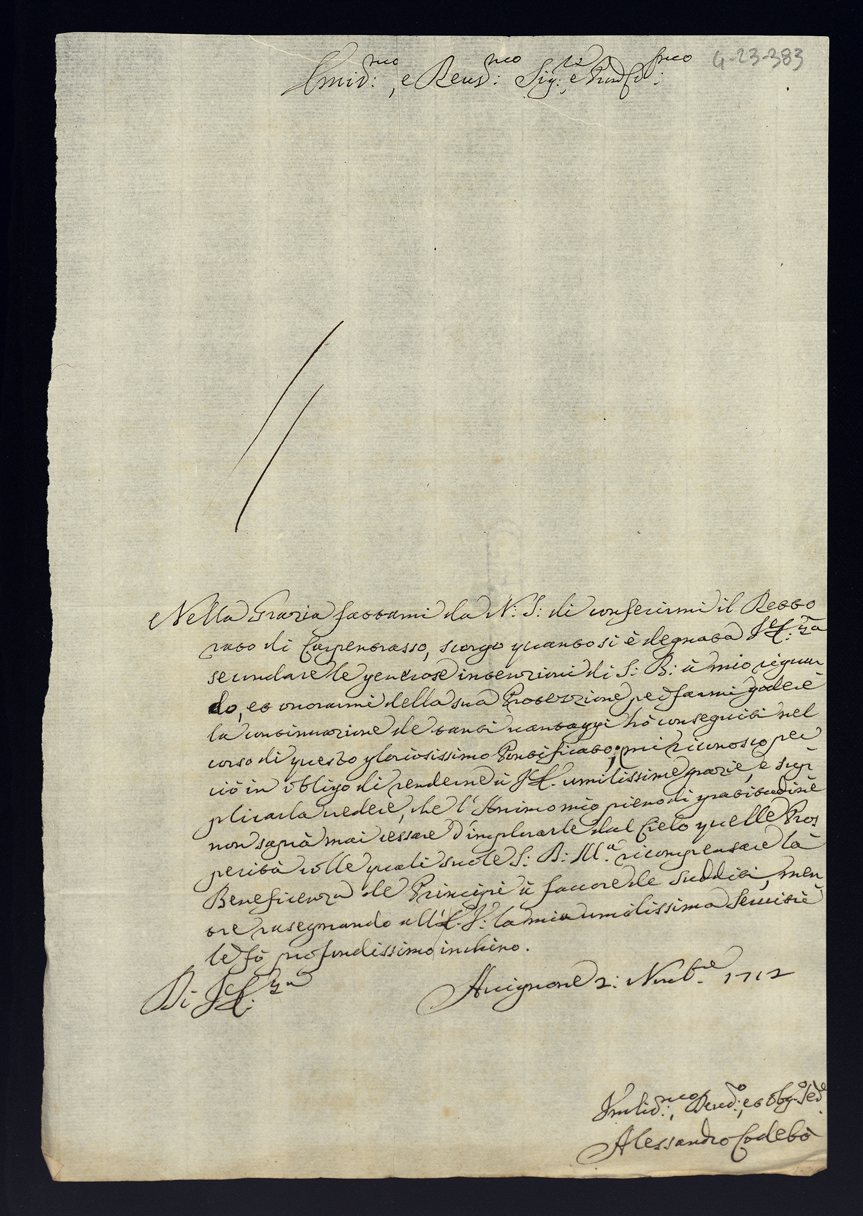 G-23-383
Emin.mo, e Reud.mo Sig.re e
Nella Grazia fattami da N: S: di conferirmi il Retto
rato di Carpentrasso, scorgo quanto si è degnata
secundare le generose intenzioni di S: B: à mio riguar
do, et onorarmi della sua Protezzione per farmi godere
la continuazione de tanti vantaggi hò conseguiti nel
corso di questo gloriosissimo Pontificato; mi riconosco per
ciò in obligo di renderne à umilissime grazie, e sup
plicarla credere, che l'Animo mio pieno di gratitudine
non saprà mai cessare d'implorarle dal Cielo quelle Pros
perità colle quali suole S: D: M.a ricompensare la
Beneficenza de Principi à favore de Sudditi, men
tre rasegnando all' la mia umilissima Servitù
le fò profondissimo inchino.
Di
Avignone 2: Nov.bre 1712
et Obg.o
Alessandro Codebò